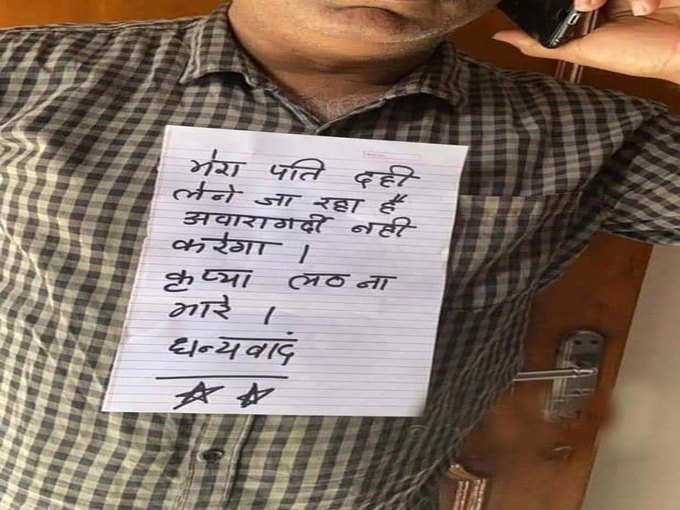 मेरा पति दही
लेने जा रहा है
अवारागर्दी नही
करेगा ।
कृप्या लठ ना
मारे ।
धन्यवादं